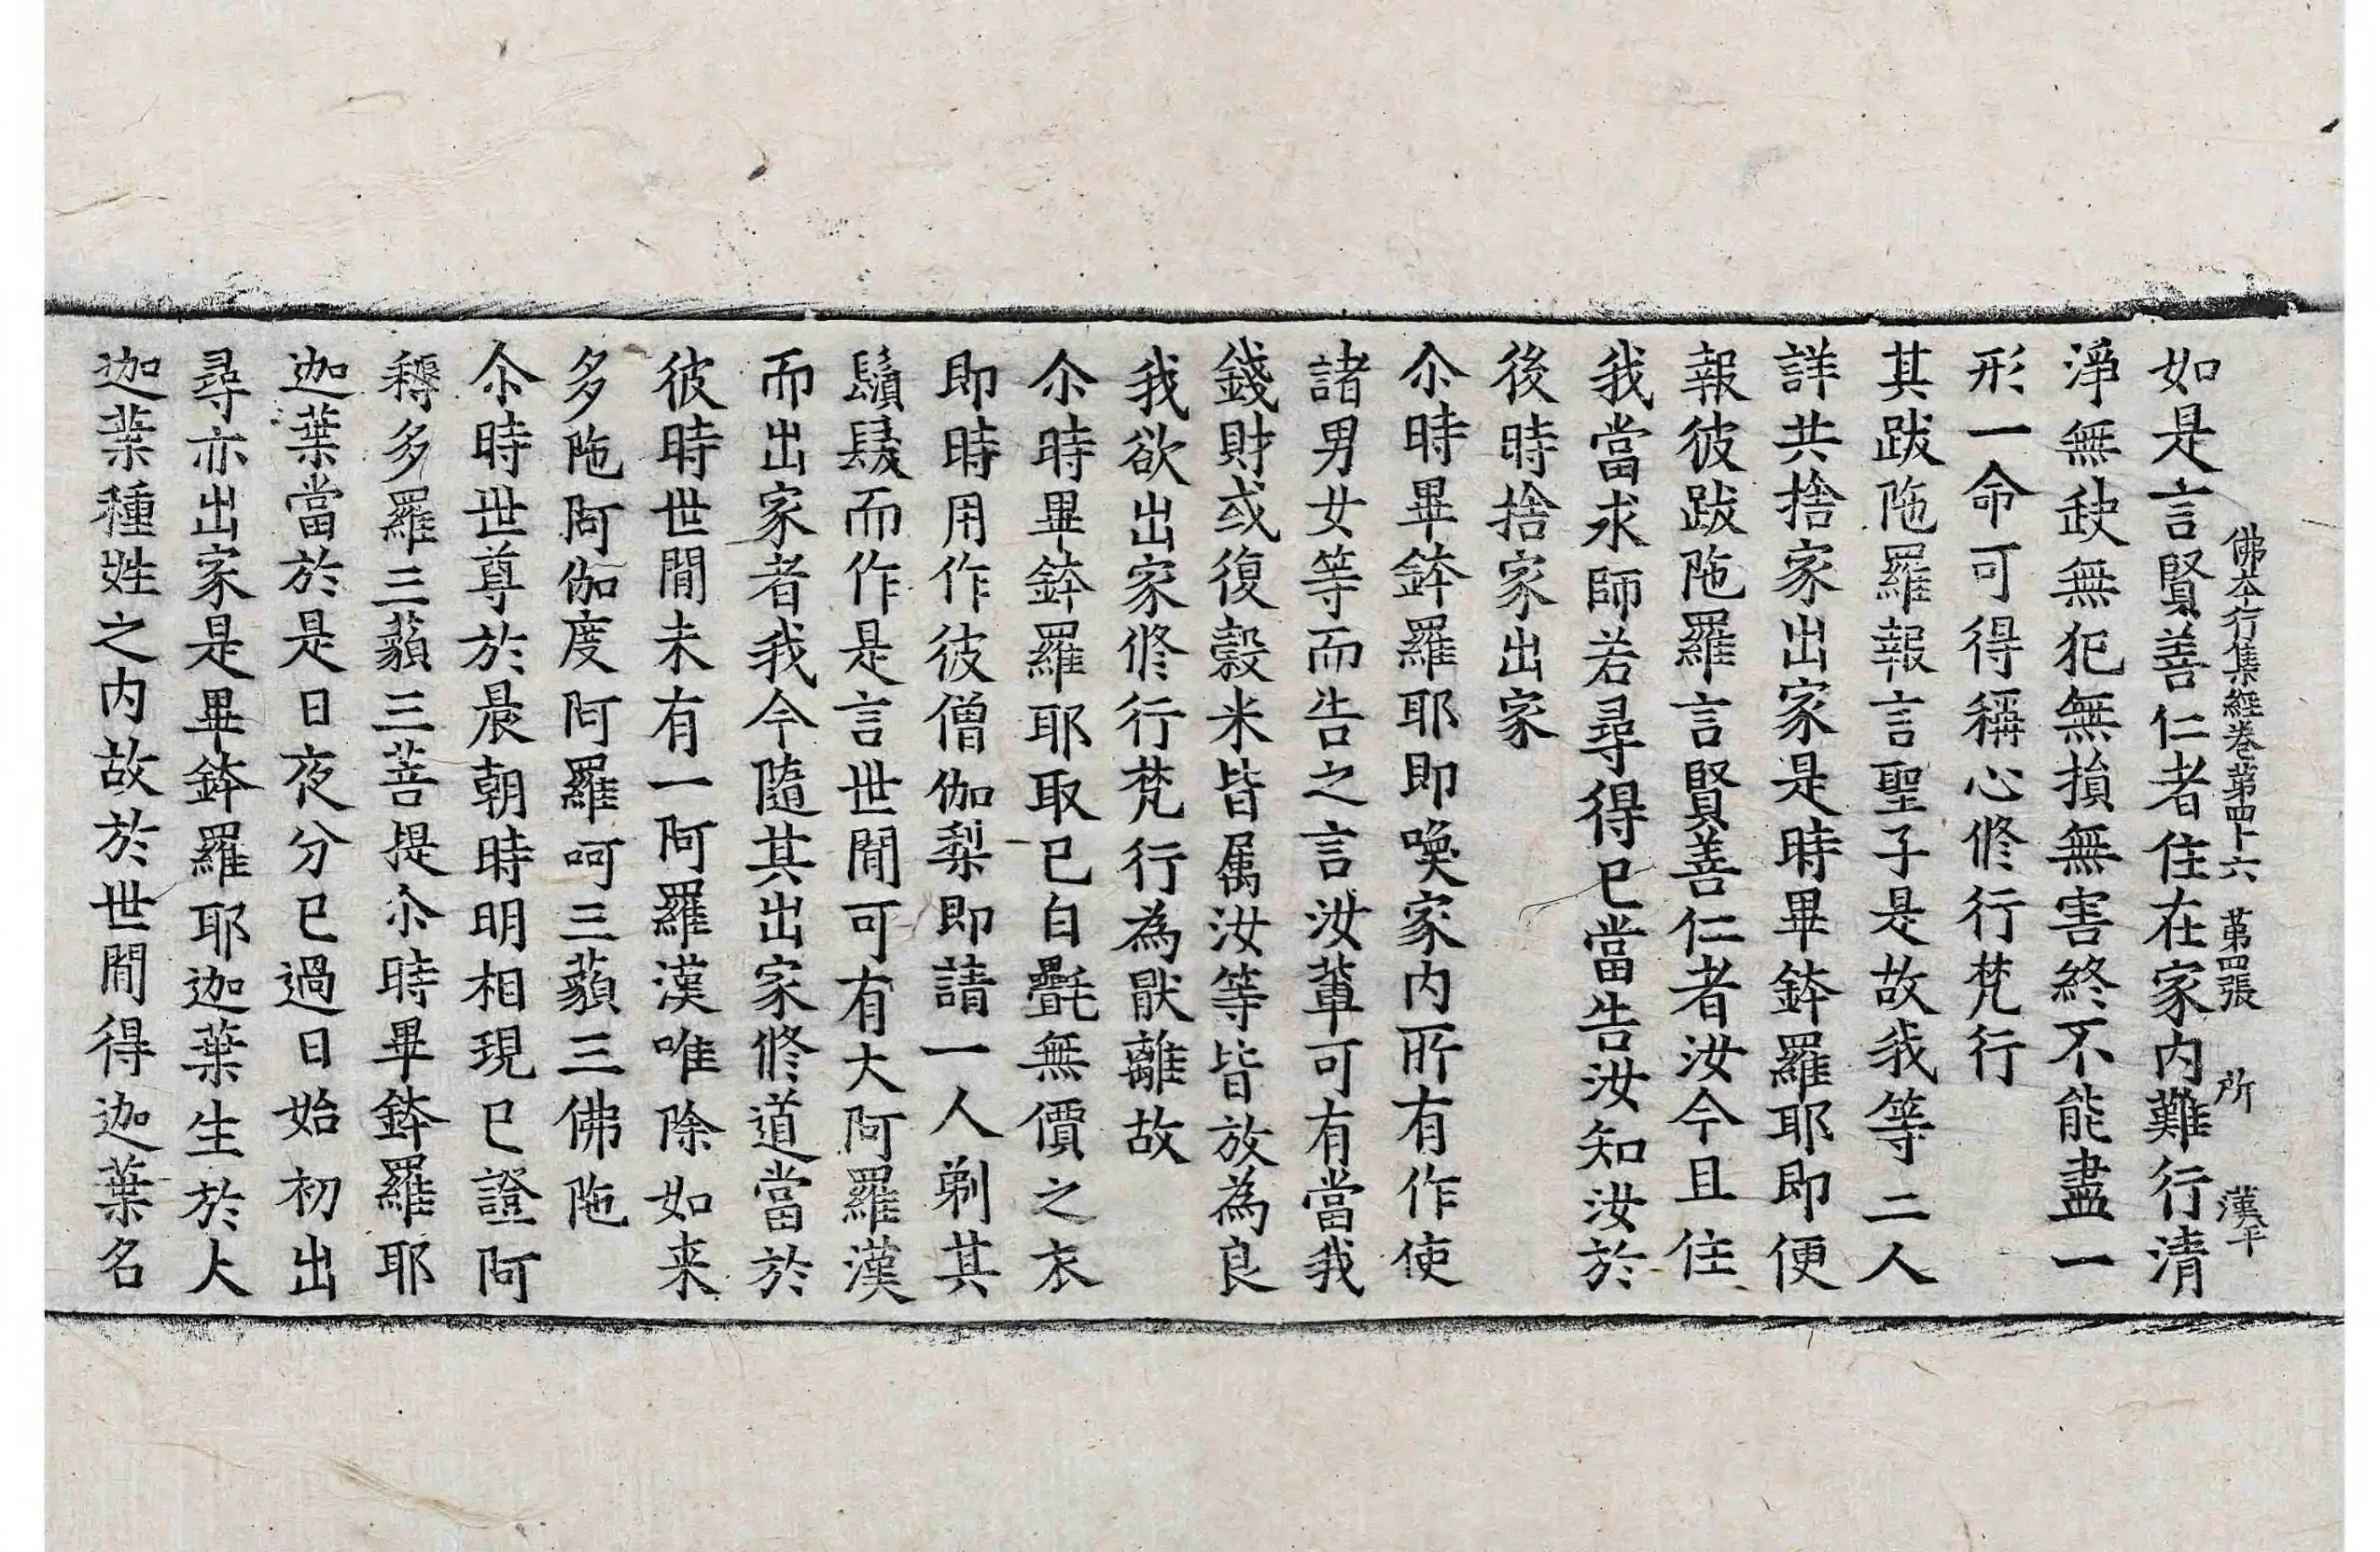 佛本行集經卷第四十六　第四張　所　漢平
如是言賢善仁者住在家内難行清
淨無缺無犯無損無害終不能盡一
形一命可得稱心修行梵行
其跋陁羅報言聖子是故我等二人
詳共捨家出家是時畢鉢羅耶即便
報彼跋陁羅言賢善仁者汝今且住
我當求師若尋得已當告汝知汝於
後時捨家出家
尒時畢鉢羅耶即喚家内所有作使
諸男女等而告之言汝軰可有當我
錢財或復穀米皆属汝等皆放為良
我欲出家修行梵行為厭離故
尒時畢鉢羅耶取已白㲲無價之衣
即時用作彼僧伽梨即請一人剃其
鬚髮而作是言世間可有大阿羅漢
而出家者我今隨其出家修道當於
彼時世間未有一阿羅漢唯除如来
多陁阿伽度阿羅呵三藐三佛陁
尒時世尊於晨朝時明相現已證阿
耨多羅三藐三菩提尒時畢鉢羅耶
迦葉當於是日夜分已過日始初出
尋亦出家是畢鉢羅耶迦葉生於大
迦葉種姓之内故於世間得迦葉名